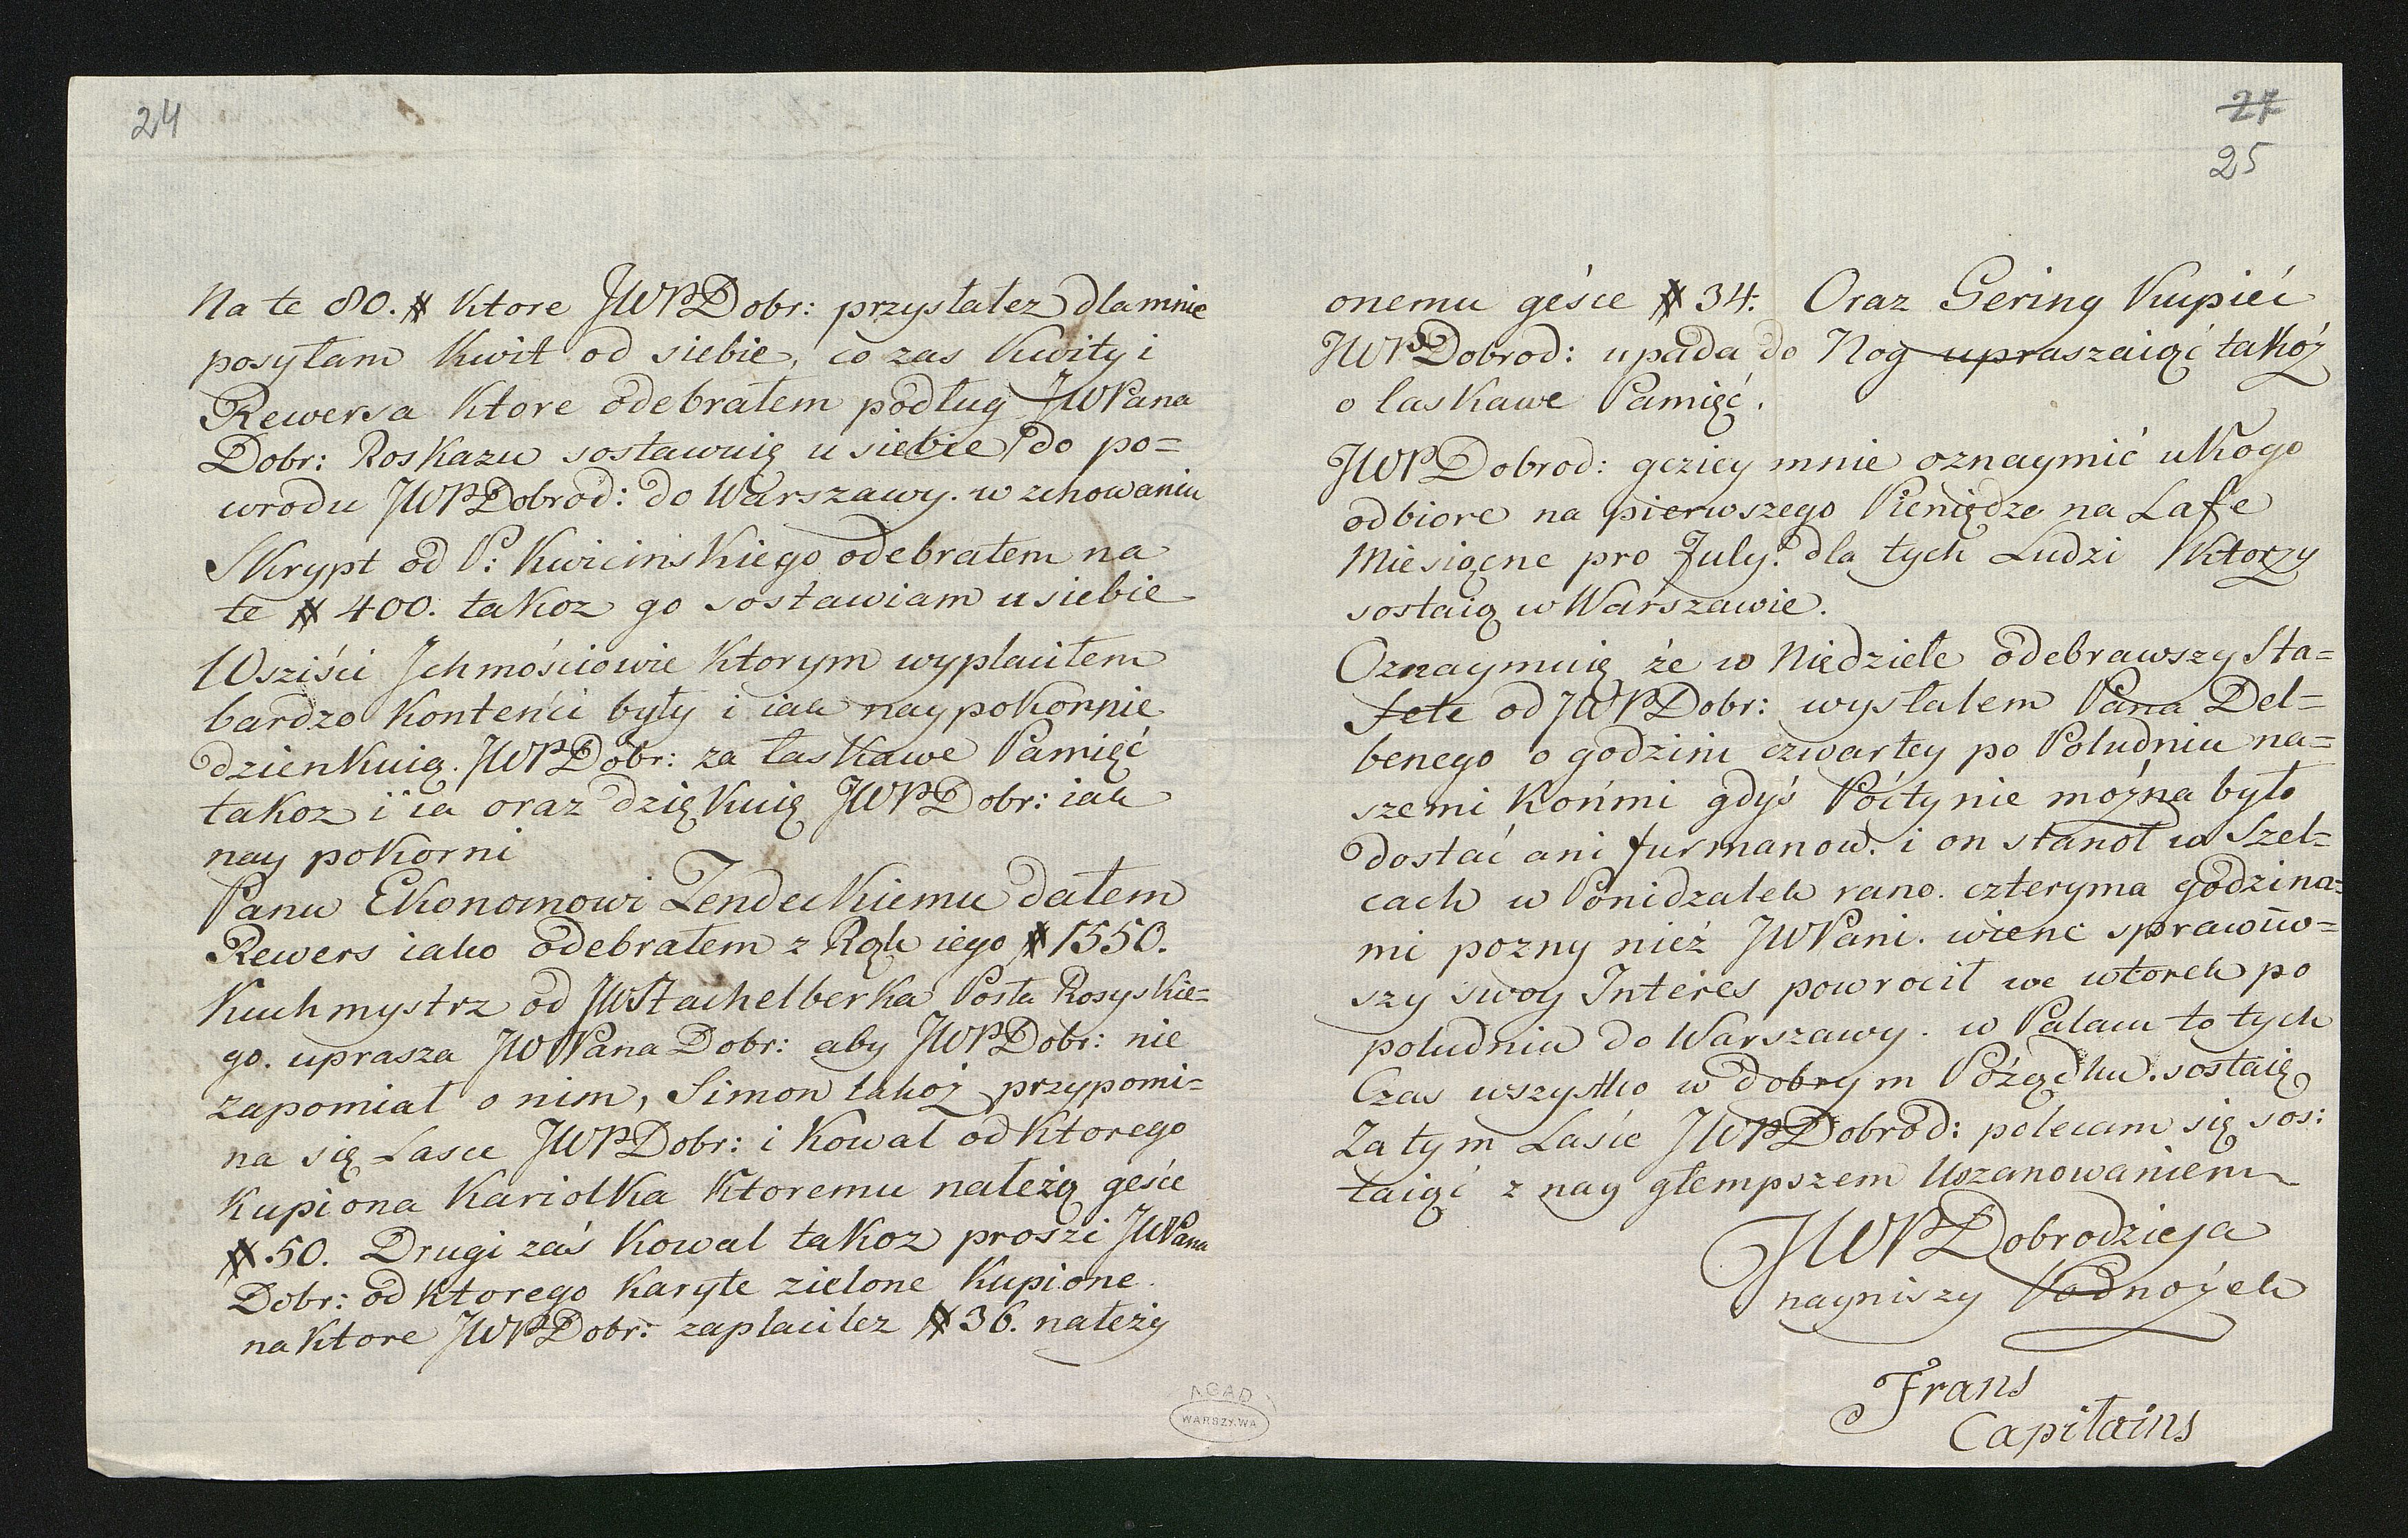 24
Na te 80. # Ktore JWPDobr: przysłałez dla mnie
posyłam Kwit od siebie, co zas Kwity i
Rewersa Ktore odebrałem podług JWPana
Dobr: Roskazu sostawuię u siebie do po=
wrodu JWPDobrod: do Warszawy. w zchowaniu
Skrypt od P: Kwicinskiego odebrałem na
te # 400. takoz go sostawiam u siebie
Wsziści Jchmościowie Ktorym wypłaciłem
bardzo Kontenći były i iak naypokornie
dzienkuią. JWPDobr: za łaskawe Pamięć
takoz i ia oraz dzięKuię JWPDobr: iak
nay poKorni
Panu EKonomowi Zendeckiemu dałem
Rewers iako odebrałem z Ręk iego # 1550.
Kuchmystrz od JWStachelberKa Posła Rosyskie=
go. uprasza JWPana Dobr: aby JWPDobr: nie
zapomiał o nim, Simon takoż przypomi=
na się Lasce JWPDobr: i Kowal od Ktorego
Kupiona KariolKa Ktoremu należą geśce
# 50. Drugi zaś Kowal takoz proszi JWPana
Dobr: od Ktorego Karyte zielone Kupione
na Ktore JWPDobr: zapłaciłez # 36. należy
AGAD
WARSZAWA
27
25
onemu geśce # 34. Oraz Gering Kupieć
JWPDobrod: upada do Nog upraszaiąć takoż
o łaskawe Pamięć.
JWPDobrod: gcziey mnie oznaymić u Kogo
odbiore na pierwszego Pieniędze na Lafe
Miesięcne pro July. dla tych Ludzi Ktorzy
sostaią w Warszawie.
Oznaymuię że w Niedziele odebrawszy Sta=
fete od JWPDobr: wysłałem Pana Del=
benego o godzini czwartey po Południu na=
szemi Końmi gdyś Poćty nie można było
dostać ani furmanow. i on stanoł w Szel=
cach w Ponidzałek rano. czteryma godzina=
mi pozny nież JWPani. wienc sprawiw=
szy swoy Interes powrocił we wtorek po
południu do Warszawy. w Pałacu to tych
Czas wszystko w dobrym Pożądku. sostaię
Za tym Lasie JWPDobrod: polecam się sos:
taiąć z nay głempszem Uszanowaniem
JWPDobrodzieja
nayniszy Podnożek
Frans
Capitains